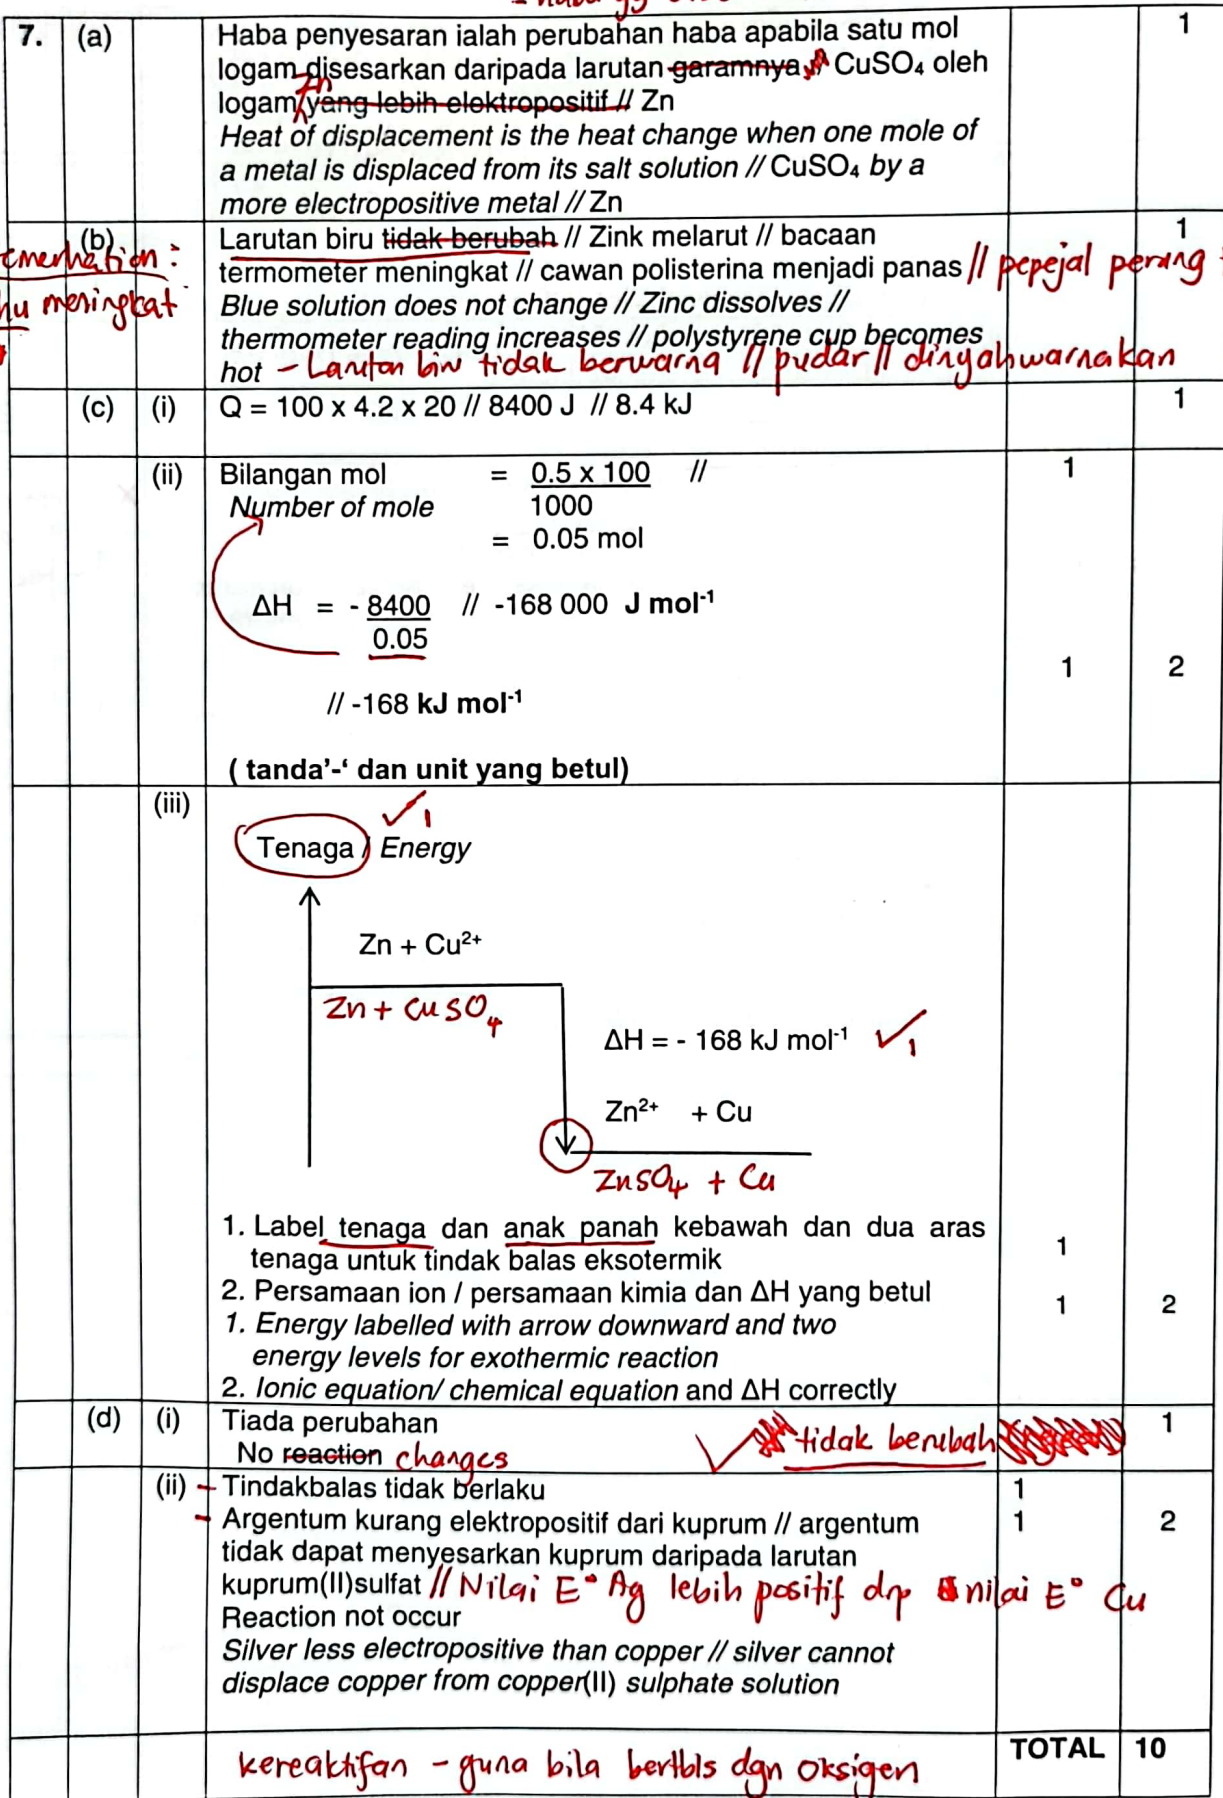 7. (a) Haba penyesaran ialah perubahan haba apabila satu mol 1
logam disesarkan daripada larutan garamnya // CuSO₄ oleh
Zn
logam yang lebih elektropositif // Zn
Heat of displacement is the heat change when one mole of
a metal is displaced from its salt solution // CuSO₄ by a
more electropositive metal // Zn
(b) Larutan biru tidak berubah // Zink melarut // bacaan 1
termometer meningkat // cawan polisterina menjadi panas // pepejal perang
meningkat
Blue solution does not change // Zinc dissolves //
thermometer reading increases // polystyrene cup becomes
hot – Larutan biru tidak berwarna // pudar // dinyahwarnakan
(c) (i) Q = 100 x 4.2 x 20 // 8400 J // 8.4 kJ 1
(ii) Bilangan mol = 0.5 x 100 // 1
Number of mole 1000
= 0.05 mol
ΔH = - 8400 // -168 000 J mol⁻¹
0.05
1 2
// -168 kJ mol⁻¹
( tanda'-‘ dan unit yang betul)
(iii)
✓1
Tenaga / Energy
Zn + Cu²⁺
Zn + CuSO₄
ΔH = - 168 kJ mol⁻¹ ✓1
Zn²⁺ + Cu
ZnSO₄ + Cu
1. Label tenaga dan anak panah kebawah dan dua aras 1
tenaga untuk tindak balas eksotermik
2. Persamaan ion / persamaan kimia dan ΔH yang betul 1 2
1. Energy labelled with arrow downward and two
energy levels for exothermic reaction
2. Ionic equation/ chemical equation and ΔH correctly
(d) (i) Tiada perubahan 1
✓ tidak berubah
No reaction changes
(ii) – Tindakbalas tidak berlaku 1
– Argentum kurang elektropositif dari kuprum // argentum 1 2
tidak dapat menyesarkan kuprum daripada larutan
kuprum(II)sulfat // Nilai E° Ag lebih positif drp nilai E° Cu
Reaction not occur
Silver less electropositive than copper // silver cannot
displace copper from copper(II) sulphate solution
TOTAL 10
kereaktifan – guna bila bertbls dgn oksigen